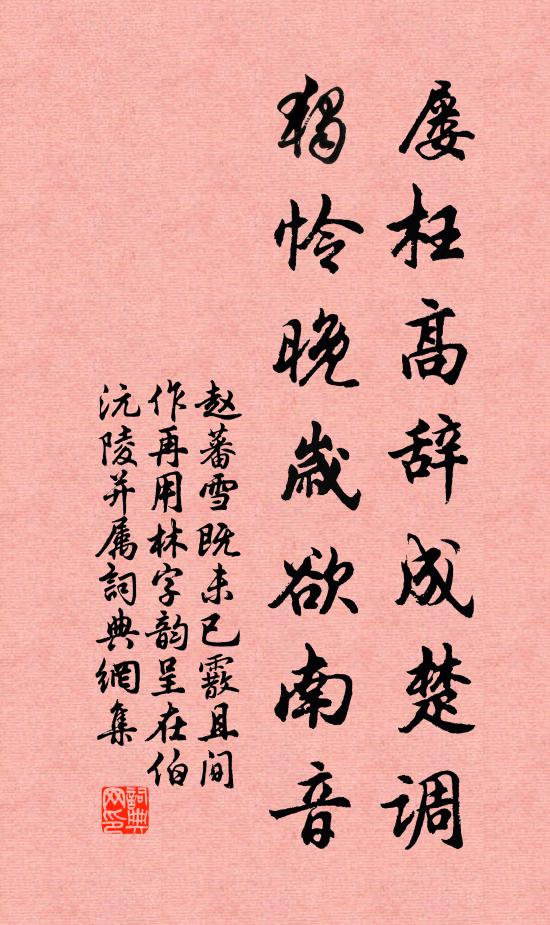 屡枉高辞成楚调
独怜晚岁欲南音
赵蕃雪既未已霰且间
作再用林字韵呈在伯
沅陵并属詞典網集
詞典
网印